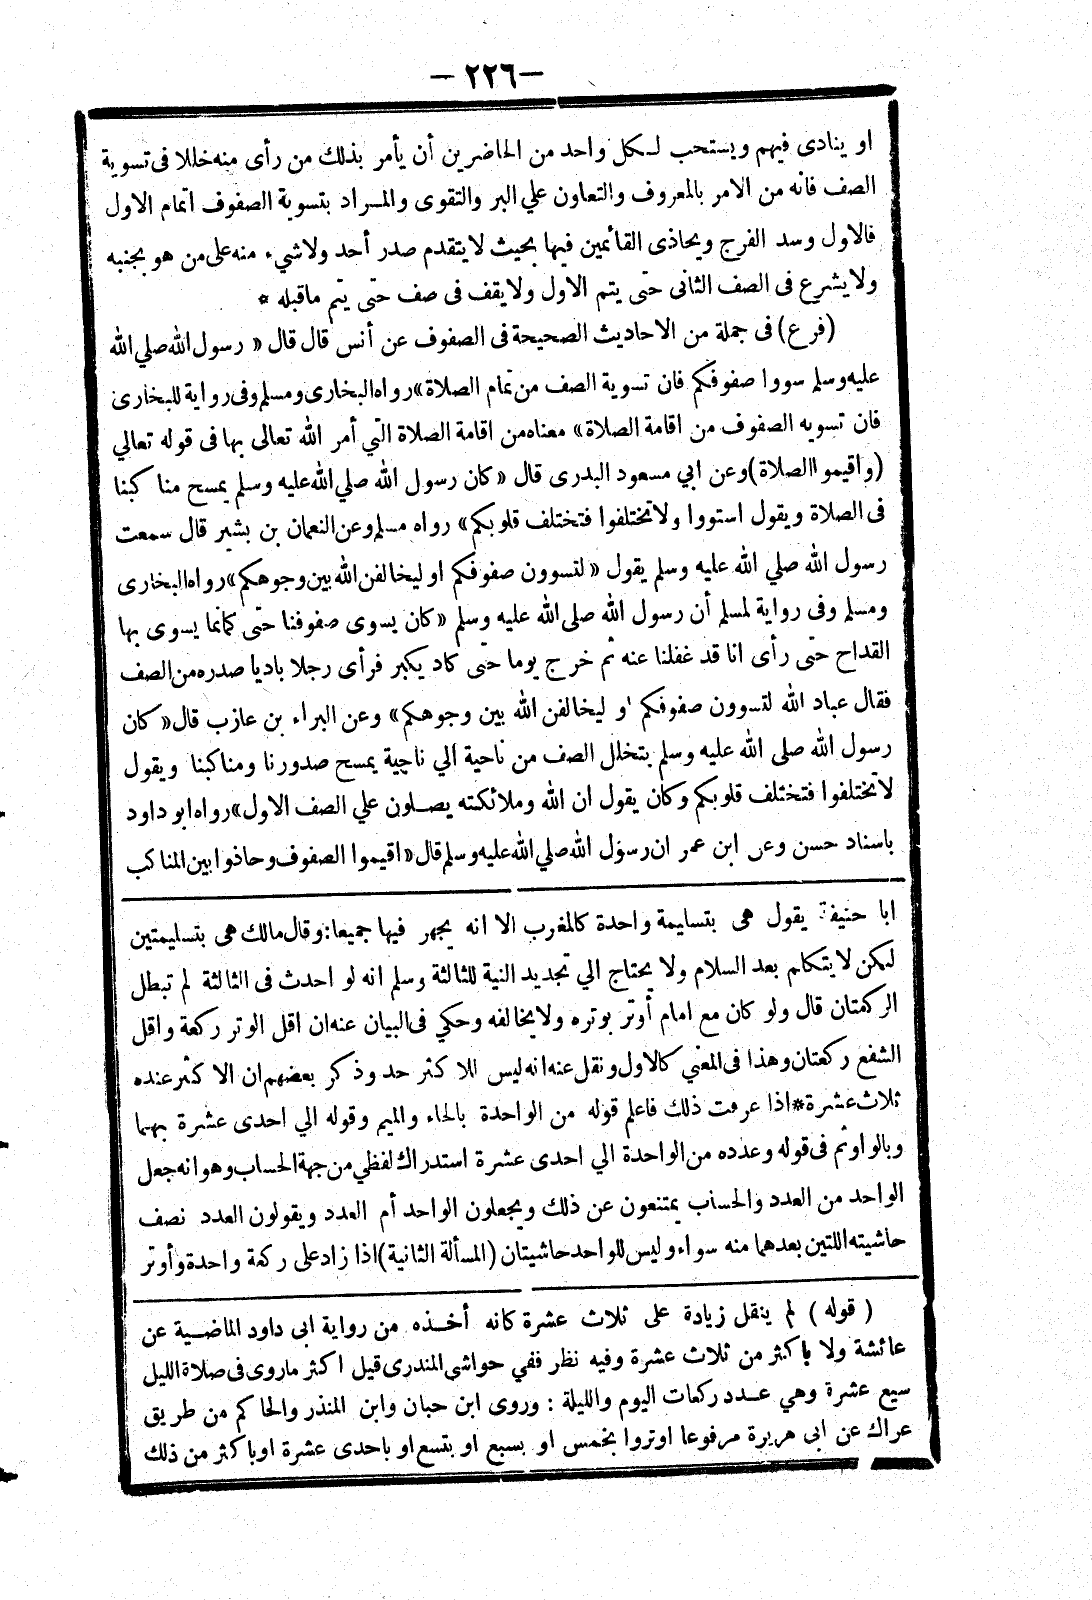 — ٢٢٦ —
او ينادى فيهم ويستحب لكل واحد من الحاضرين أن يأمر بذلك من رأى منه خللا فى تسوية
الصف فانه من الامر بالمعروف والتعاون علي البر والتقوى والمراد بتسوية الصفوف اتمام الاول
فالاول وسد الفرج ويحاذى القائمين فيها بحيث لا يتقدم صدر أحد ولا شيء منه على من هو بجنبه
ولا يشرع فى الصف الثانى حتى يتم الاول ولا يقف فى صف حتى يتم ما قبله *
(فرع) فى جملة من الاحاديث الصحيحة فى الصفوف عن أنس قال قال « رسول الله صلي الله
عليه وسلم سووا صفوفكم فان تسوية الصف من تمام الصلاة» رواه البخارى ومسلم وفى رواية للبخارى
فان تسويه الصفوف من اقامة الصلاة» معناه من اقامة الصلاة التي أمر الله تعالى بها فى قوله تعالي
(واقيموا الصلاة) وعن ابي مسعود البدرى قال «كان رسول الله صلي الله عليه وسلم يمسح منا كبنا
فى الصلاة ويقول استووا ولا تختلفوا فتختلف قلوبكم» رواه مسلم وعن النعمان بن بشير قال سمعت
رسول الله صلي الله عليه وسلم يقول «لتسوون صفوفكم او ليخالفن الله بين وجوهكم» رواه البخارى
ومسلم وفى رواية لمسلم أن رسول الله صلى الله عليه وسلم «كان يسوى صفوفنا حتى كأنما يسوى بها
القداح حتى رأى انا قد غفلنا عنه ثم خرج يوما حتى كاد يكبر فرأى رجلا باديا صدره من الصف
فقال عباد الله لتسوون صفوفكم او ليخالفن الله بين وجوهكم» وعن البراء بن عازب قال «كان
رسول الله صلى الله عليه وسلم يتخلل الصف من ناحية الي ناحية يمسح صدورنا ومناكبنا ويقول
لا تختلفوا فتختلف قلوبكم وكان يقول ان الله وملائكته يصلون علي الصف الاول» رواه ابو داود
باسناد حسن وعن ابن عمر ان رسول الله صلي الله عليه وسلم قال «اقيموا الصفوف وحاذوا بين المناكب
ابا حنيفة يقول هى بتسليمة واحدة كالمغرب الا انه يجهر فيها جميعا: وقال مالك هى بتسليمتين
لكن لا يتكلم بعد السلام ولا يحتاج الي تجديد النية للثالثة وسلم انه لو احدث فى الثالثة لم تبطل
الركعتان قال ولو كان مع امام أوتر بوتره ولا يخالفه وحكي فى البيان عنه ان اقل الوتر ركعة واقل
الشفع ركعتان وهذا فى المعنى كالاول ونقل عنه انه ليس للا كثر حد وذكر بعضهم ان الا كثر عنده
ثلاث عشرة* اذا عرفت ذلك فاعلم قوله من الواحدة بالحاء والميم وقوله الي احدى عشرة بهما
وبالواو ثم فى قوله وعدده من الواحدة الي احدى عشرة استدراك لفظي من جهة الحساب وهو انه جعل
الواحد من العدد والحساب يمتنعون عن ذلك ويجعلون الواحد أم العدد ويقولون العدد نصف
حاشيته اللتين بعدهما منه سواء وليس للواحد حاشيتان (المسألة الثانية) اذا زاد على ركعة واحدة وأوتر
( قوله ) لم ينقل زيادة على ثلاث عشرة كانه أخذه من رواية ابى داود الماضية عن
عائشة ولا باكثر من ثلاث عشرة وفيه نظر ففي حواشى المنذرى قيل اكثر ماروى فى صلاة الليل
سبع عشرة وهي عدد ركعات اليوم والليلة : وروى ابن حبان وابن المنذر والحا كم من طريق
عراك عن ابى هريرة مرفوعا اوتروا بخمس او بسبع او بتسع او باحدى عشرة او باكثر من ذلك